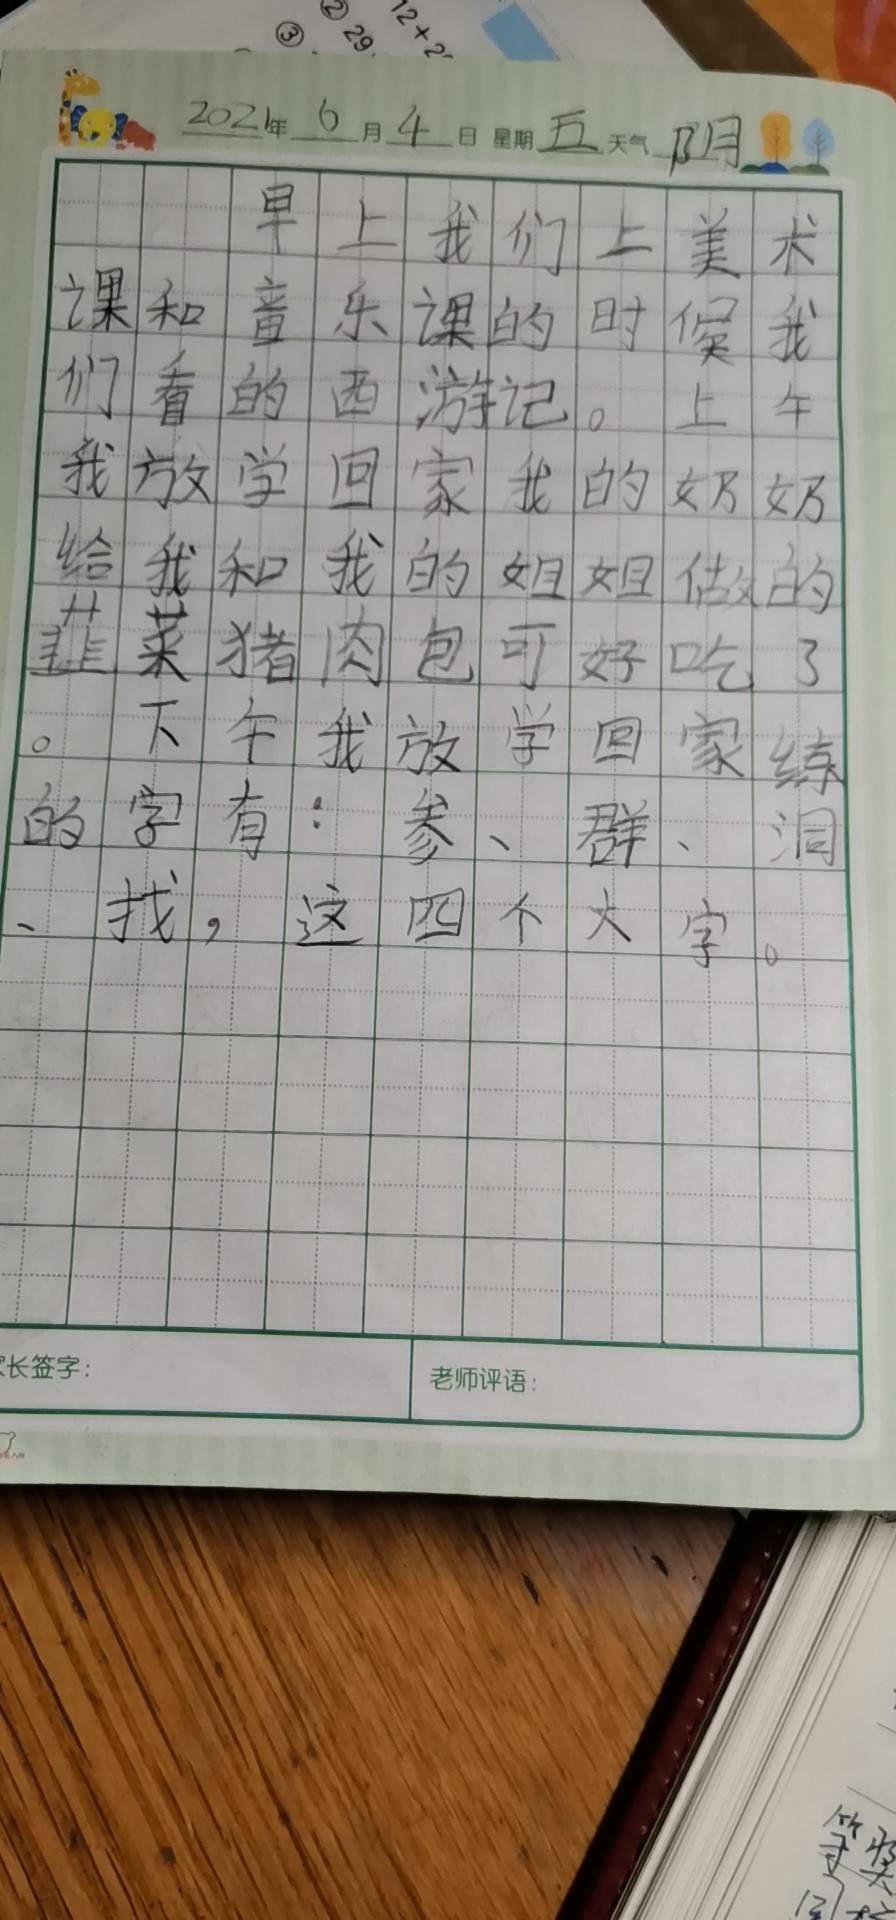 ② 12+2
③ 29
2021年 6 月 4 日 星期 五 天气 阴
早上我们上美术
课和音乐课的时候我
们看的西游记。上午
我放学回家我的奶奶
给我和我的姐姐做的
韮菜猪肉包可好吃了
。下午我放学回家练
的字有：参、群、洞
、找，这四个大字。
长签字：
老师评语：
等奖